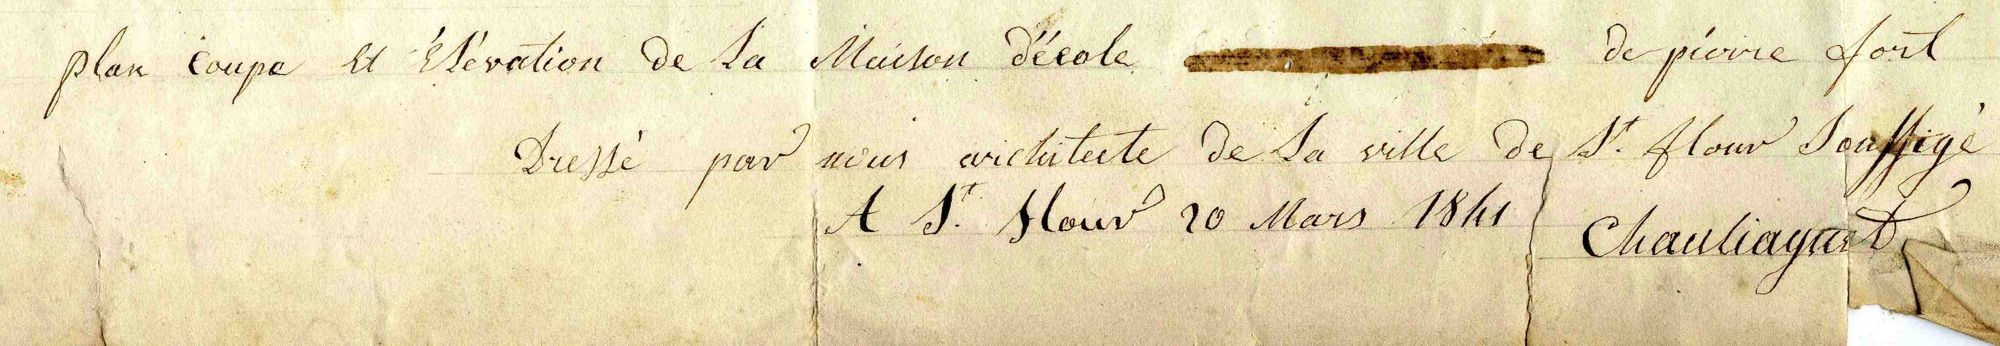 plan coupe et élévation de la Maison d'école de pierre fort
Dressé par nous architecte de la ville de St. flour Soussigé
A St. flour 20 Mars 1841 Chauliaguet